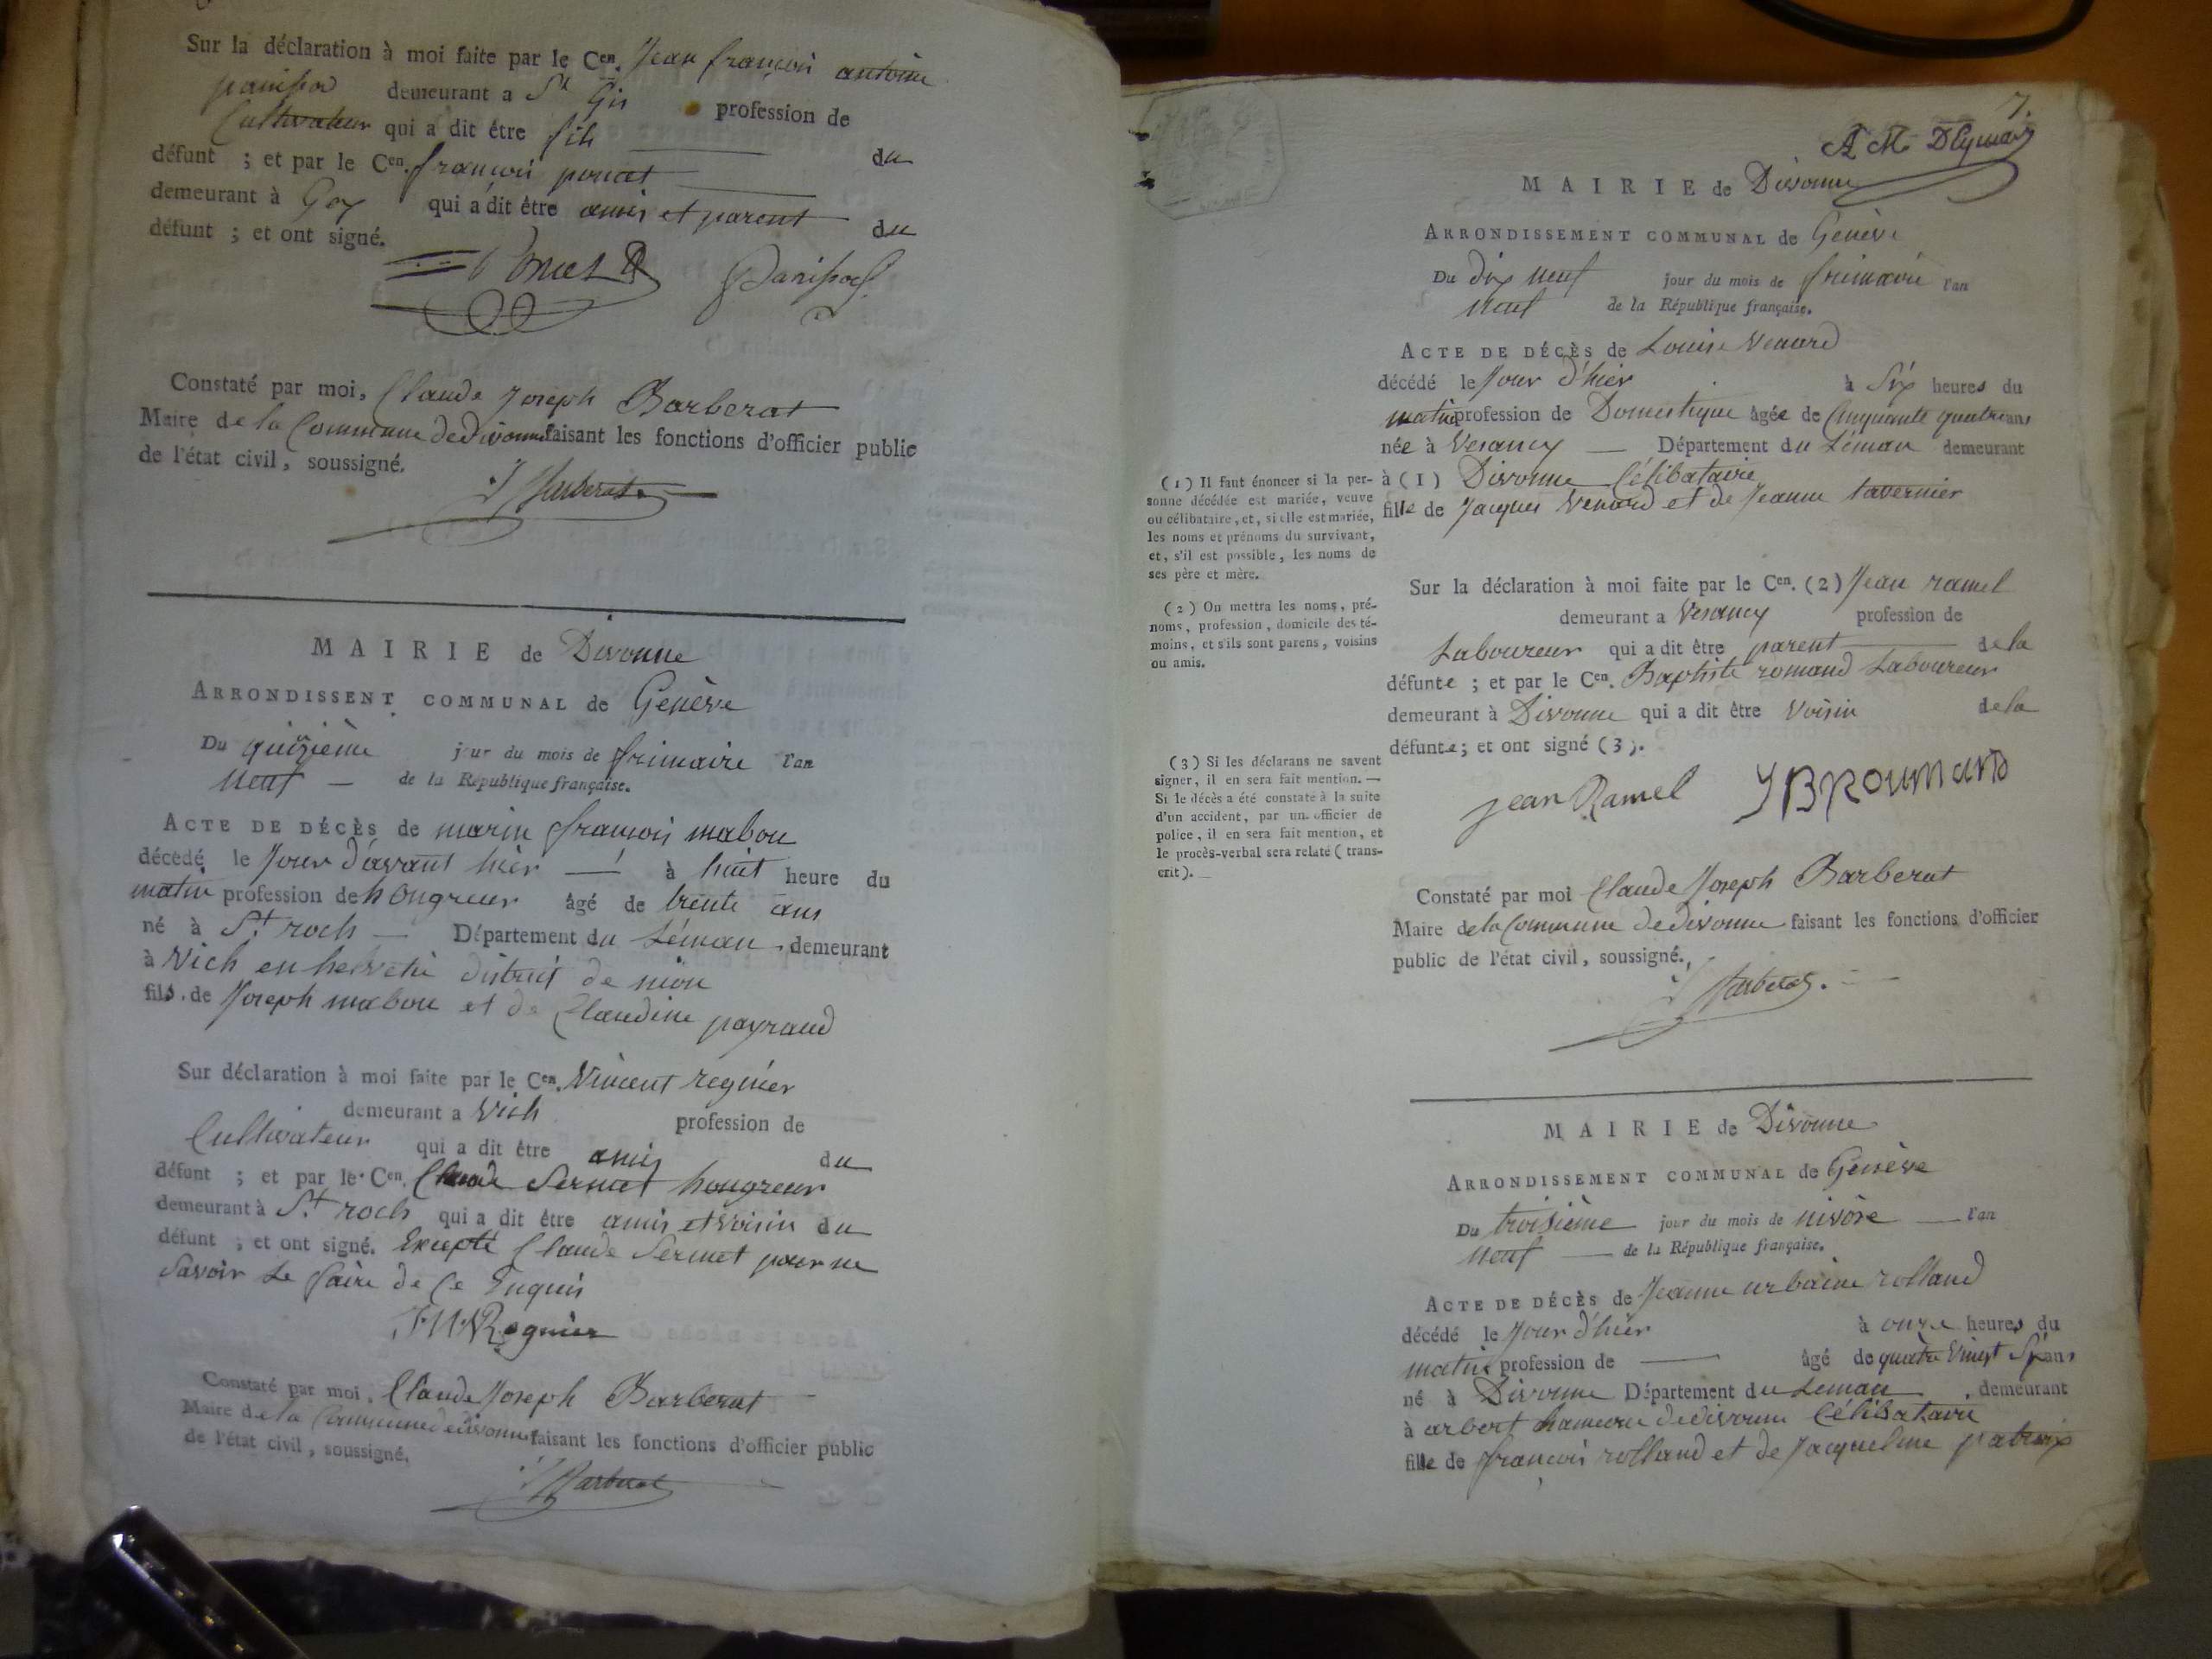 Sur la déclaration à moi faite par le Cen. Jean françois antoine
panissod demeurant a St Gis profession de
Cultivateur qui a dit être fils du
défunt ; et par le Cen. françois poncet
demeurant à Gex qui a dit être amis et parent du
défunt ; et ont signé.
Poncet Panissod
Constaté par moi, Claude Joseph Barberat
Maire de la Commune de divonne faisant les fonctions d'officier public
de l'état civil, soussigné.
Barberat
MAIRIE de Divonne
ARRONDISSENT COMMUNAL de Genève
Du quizième jour du mois de frimaire l'an
neuf — de la République française.
ACTE DE DÉCÈS de marin françois mabou
décédé le Jour d'avant hier — à huit heure du
matin profession de hongreur âgé de trente ans
né à St. roch — Département du Léman, demeurant
à Vich en helvetie district de nion
fils de Joseph mabou et de Claudine payraud
Sur déclaration à moi faite par le Cen. Vincent regnier
demeurant a Vich profession de
Cultivateur qui a dit être amis du
défunt ; et par le Cen. Claude Sermet hongreur
demeurant à St. roch qui a dit être amis et voisin du
défunt ; et ont signé. Excepté Claude Sermet pour ne
Savoir Le faire de Ce Enquis
Regnier
Constaté par moi, Claude Joseph Barberat
Maire de la Commune de divonne faisant les fonctions d'officier public
de l'état civil, soussigné.
Barberat
7.
A M
MAIRIE de Divonne
ARRONDISSEMENT COMMUNAL de Genève
Du dix neuf jour du mois de frimaire l'an
neuf de la République française.
ACTE DE DÉCÈS de Louise Venard
décédé le Jour d'hier à Six heures du
matin profession de Domestique âgée de Cinquante quatre ans
née à Vesancy — Département du Léman demeurant
à (1) Divonne Célibataire
fille de Jacques Venard et de Jeanne tavernier
(1) Il faut énoncer si la per-
sonne décédée est mariée, veuve
ou célibataire, et, si elle est mariée,
les noms et prénoms du survivant,
et, s'il est possible, les noms de
ses père et mère.
Sur la déclaration à moi faite par le Cen. (2) Jean ramel
demeurant a Vesancy profession de
Laboureur qui a dit être parent de la
défunte ; et par le Cen. Baptiste romand Laboureur
demeurant à Divonne qui a dit être Voisin de la
défunte ; et ont signé (3).
(2) On mettra les noms, pré-
noms, profession, domicile des té-
moins, et s'ils sont parens, voisins
ou amis.
(3) Si les déclarans ne savent
signer, il en sera fait mention. —
Si le décès a été constaté à la suite
d'un accident, par un officier de
police, il en sera fait mention, et
le procès-verbal sera relaté (trans-
crit). —
jean Ramel JBROUMAND
Constaté par moi Claude Joseph Barberat
Maire de la Commune de divonne faisant les fonctions d'officier
public de l'état civil, soussigné.
Barberat.
MAIRIE de Divonne
ARRONDISSEMENT COMMUNAL de Genève
Du troisième jour du mois de nivôse — l'an
neuf — de la République française.
ACTE DE DÉCÈS de Jeanne urbaine rolland
décédé le Jour d'hier à onze heures du
matin profession de — âgé de quatre Vingt Six ans
né à Divonne Département du Léman, demeurant
à arbert hameau de divonne Célibataire
fille de françois rolland et de Jacqueline patroix